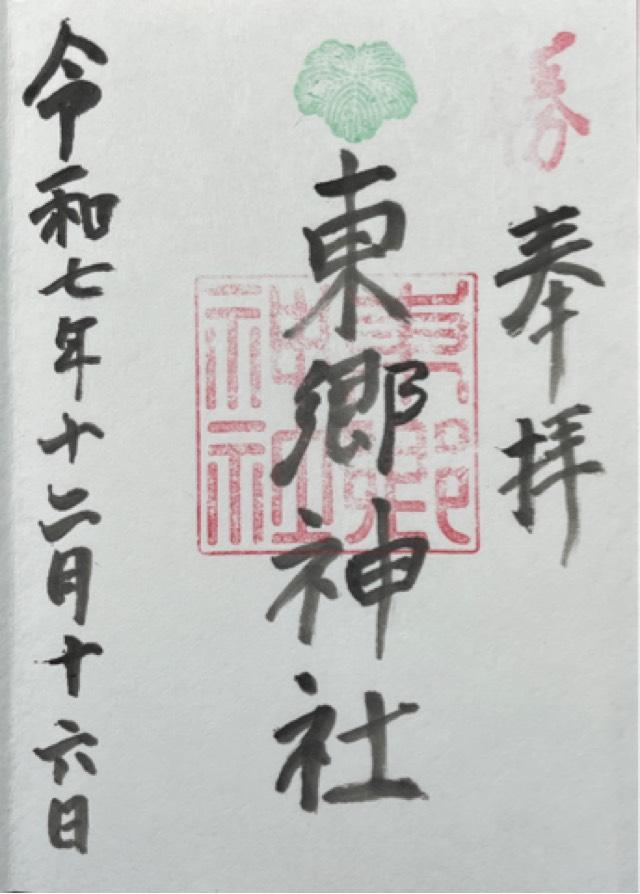 勝
奉拝
東郷神社
東郷神社
令和七年十二月十六日